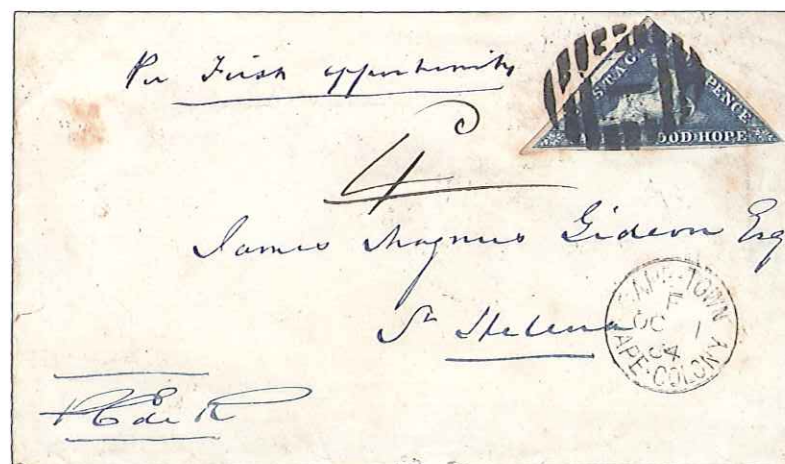 Per First opportunity
STAG PENCE
OOD HOPE
4d
James Magnus Gideon Esq
St Helena
CAPE-TOWN
F
OC 1
64
APE-COLONY